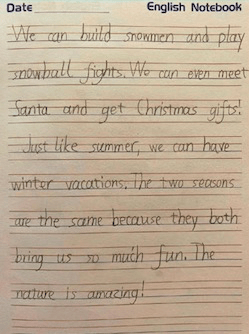 Date English Notebook
We can build snowmen and play
snowball fights. We can even meet
Santa and get Christmas gifts!
Just like summer, we can have
winter vacations. The two seasons
are the same because they both
bring us so much fun. The
nature is amazing!